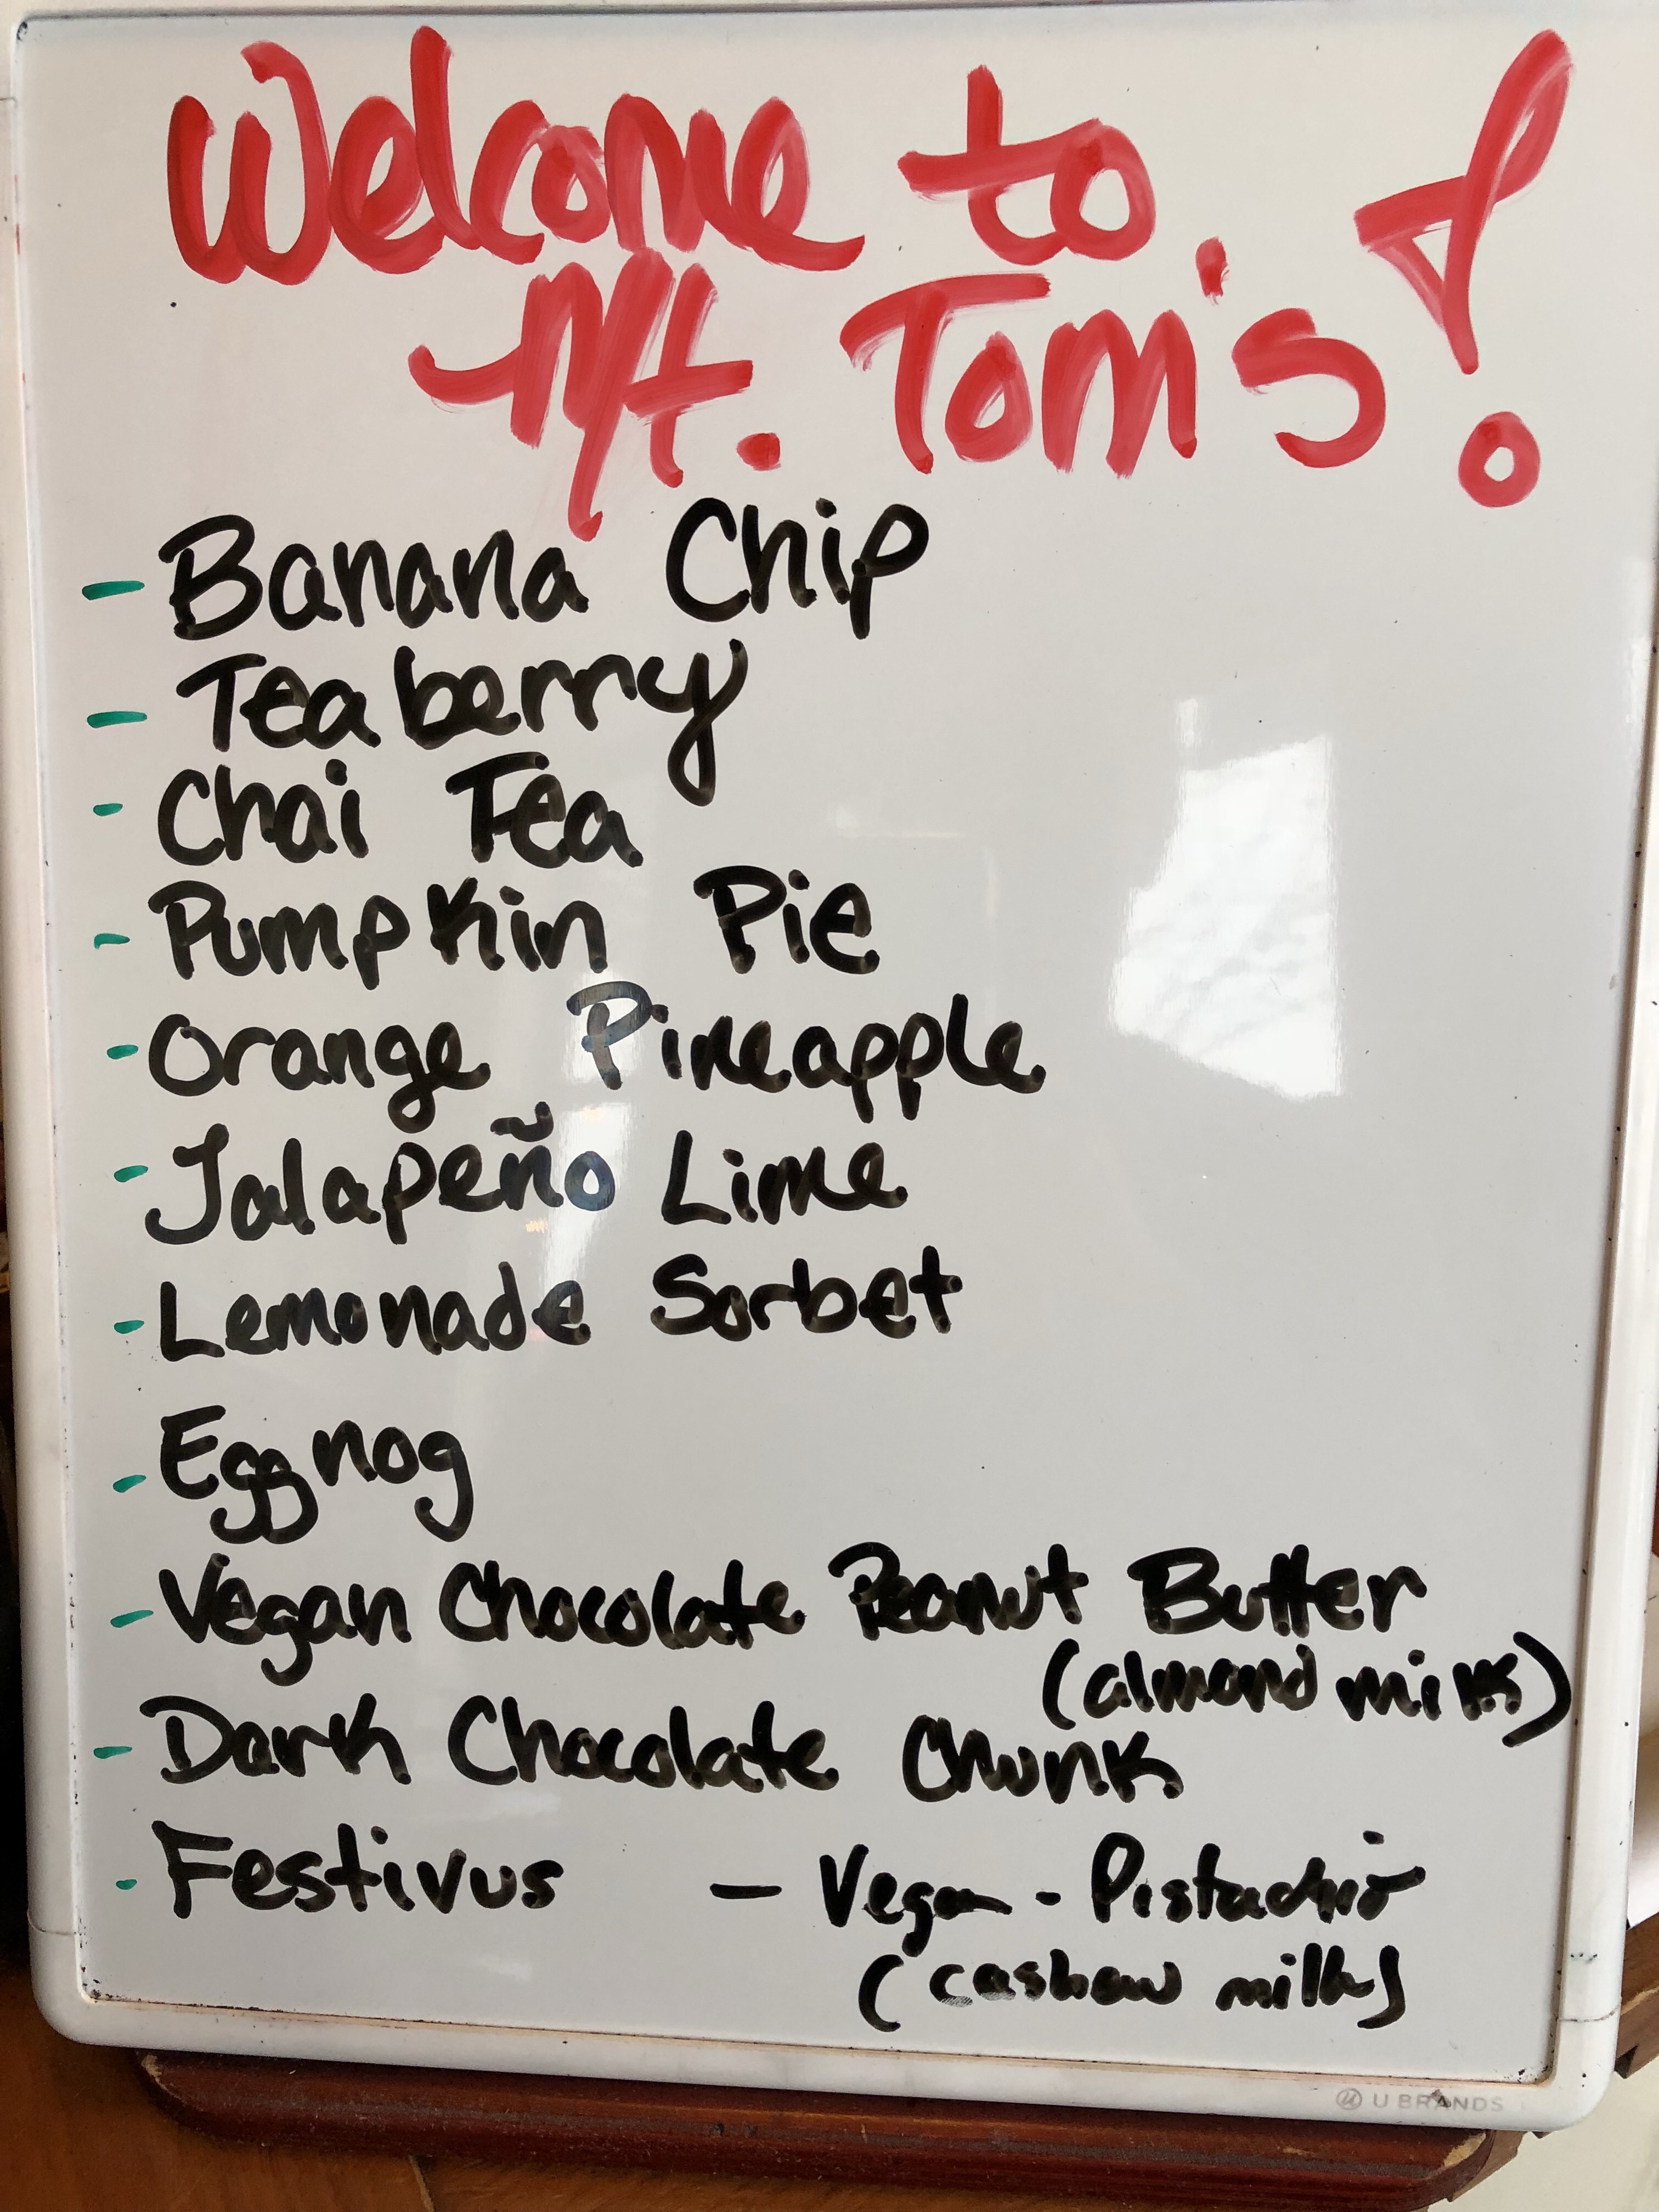 Welcome to
Mt. Tom's!
- Banana Chip
- Teaberry
- Chai Tea
- Pumpkin Pie
- Orange Pineapple
- Jalapeño Lime
- Lemonade Sorbet
- Eggnog
- Vegan Chocolate Peanut Butter
(almond milk)
- Dark Chocolate Chunk
- Festivus — Vegan - Pistachio
(cashew milk)
U BRANDS